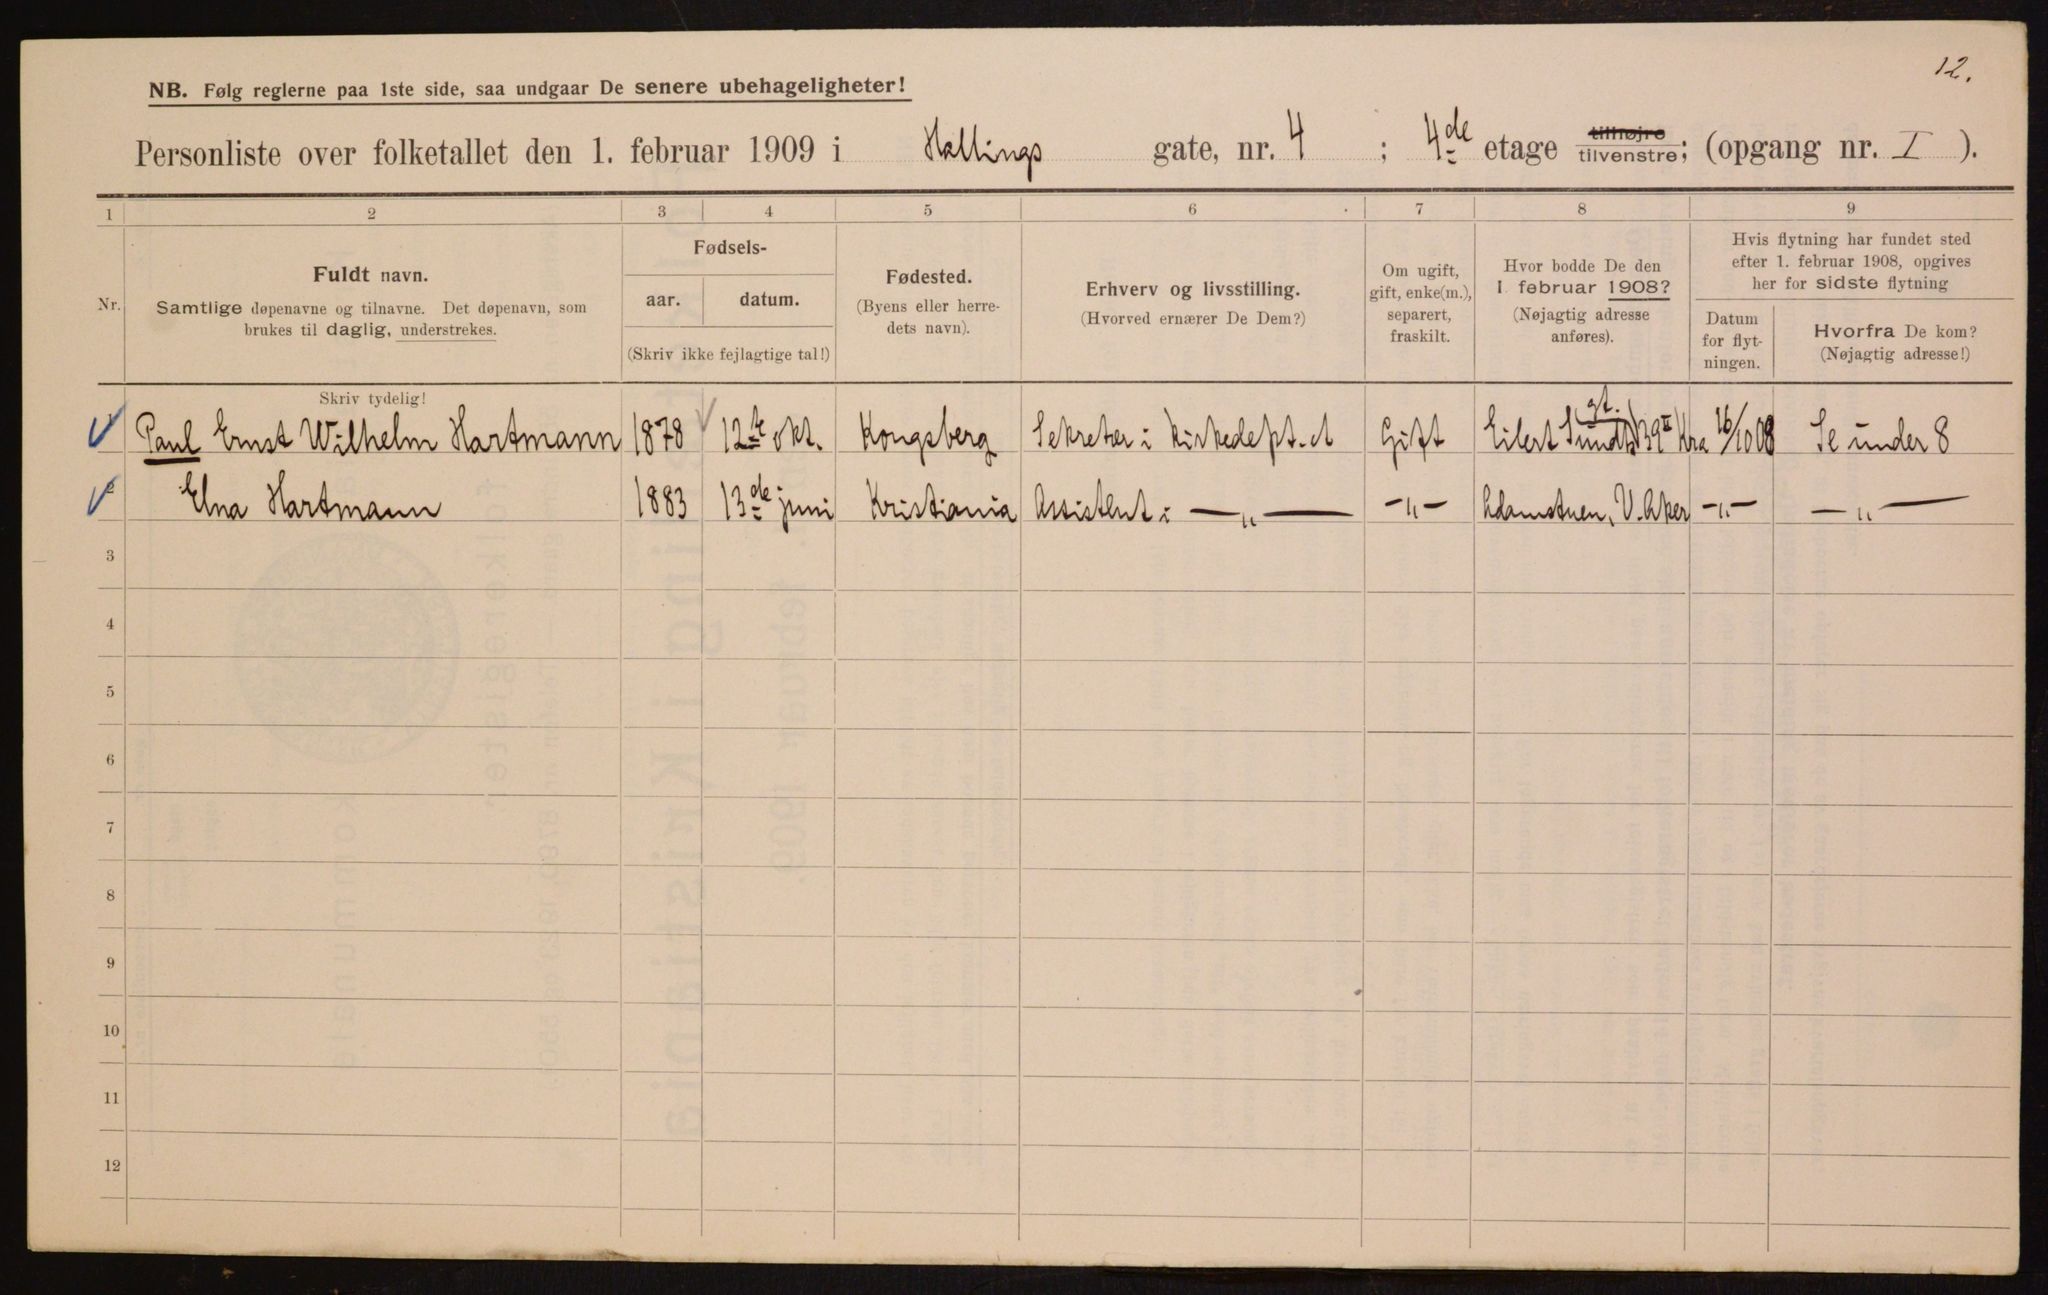 12.
NB. Følg reglerne paa 1ste side, saa undgaar De senere ubehageligheter!
Personliste over folketallet den 1. februar 1909 i Hallings gate, nr. 4 ; 4de etage tilhøjre tilvenstre; (opgang nr. I ).
1 2 3 4 5 6 7 8 9
Nr.
Fuldt navn.
Samtlige døpenavne og tilnavne. Det døpenavn, som
brukes til daglig, understrekes.
Fødsels-
aar. datum.
(Skriv ikke fejlagtige tal!)
Fødested.
(Byens eller herre-
dets navn).
Erhverv og livsstilling.
(Hvorved ernærer De Dem?)
Om ugift,
gift, enke(m.),
separert,
fraskilt.
Hvor bodde De den
1. februar 1908?
(Nøjagtig adresse
anføres).
Hvis flytning har fundet sted
efter 1. februar 1908, opgives
her for sidste flytning
Datum
for flyt-
ningen.
Hvorfra De kom?
(Nøjagtig adresse!)
Skriv tydelig!
1 Paul Ernst Wilhelm Hartmann 1878 12te okt. Kongsberg Sekretær i Kirkedept. et Gift Eilert Sundts gt. 39 II Kra 16/10 08 Se under 8
2 Elna Hartmann 1883 13de juni Kristiania Assistent i —„— —„— Adamstuen, V. Aker —„— —„—
3
4
5
6
7
8
9
10
11
12